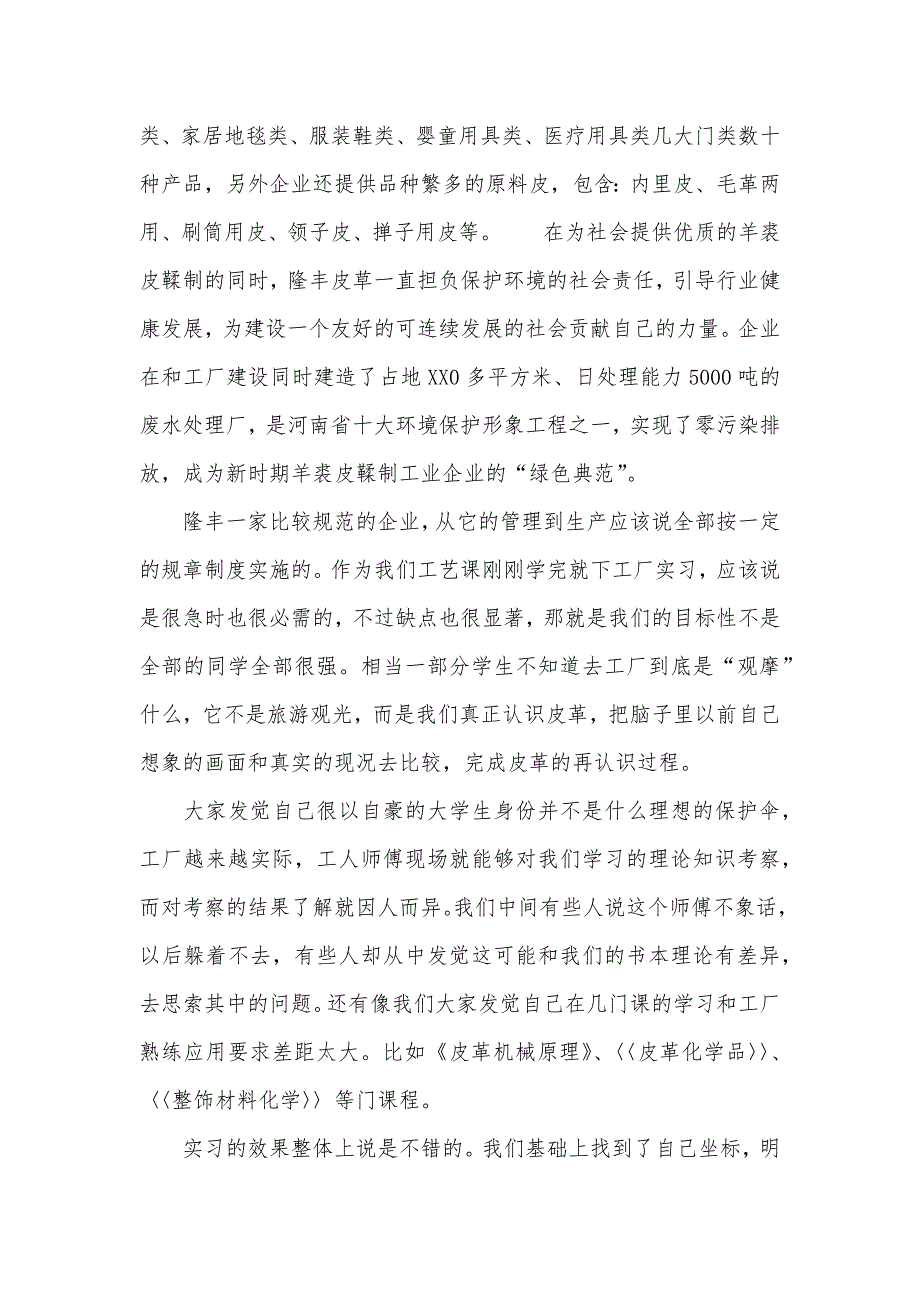 类、家居地毯类、服装鞋类、婴童用具类、医疗用具类几大门类数十
种产品，另外企业还提供品种繁多的原料皮，包含：内里皮、毛革两
用、刷筒用皮、领子皮、掸子用皮等。　　在为社会提供优质的羊裘
皮鞣制的同时，隆丰皮草一直担负保护环境的社会责任，引导行业健
康发展，为建设一个友好的可连续发展的社会贡献自己的力量。企业
在和工厂建设同时建造了占地 XX0 多平方米、日处理能力 5000 吨的
废水处理厂，是河南省十大环境保护形象工程之一，实现了零污染排
放，成为新时期羊裘皮鞣制工业企业的“绿色典范”。
隆丰一家比较规范的企业，从它的管理到生产应该说全部按一定
的规章制度实施的。作为我们工艺课刚刚学完就下工厂实习，应该说
是很急时也很必需的，不过缺点也很显著，那就是我们的目标性不是
全部的同学全部很强。相当一部分学生不知道去工厂到底是“观摩”
什么，它不是旅游观光，而是我们真正认识皮革，把脑子里以前自己
想象的画面和真实的现况去比较，完成皮革的再认识过程。
大家发觉自己很以自豪的大学生身份并不是什么理想的保护伞，
工厂越来越实际，工人师傅现场就能够对我们学习的理论知识考察，
而对考察的结果了解就因人而异。我们中间有些人说这个师傅不象话，
以后躲着不去，有些人却从中发觉这可能和我们的书本理论有差异，
去思索其中的问题。还有像我们大家发觉自己在几门课的学习和工厂
熟练应用要求差距太大。比如《皮革机械原理》、〈〈皮革化学品〉〉、
〈〈整饰材料化学〉〉等门课程。
实习的效果整体上说是不错的。我们基础上找到了自己坐标，明